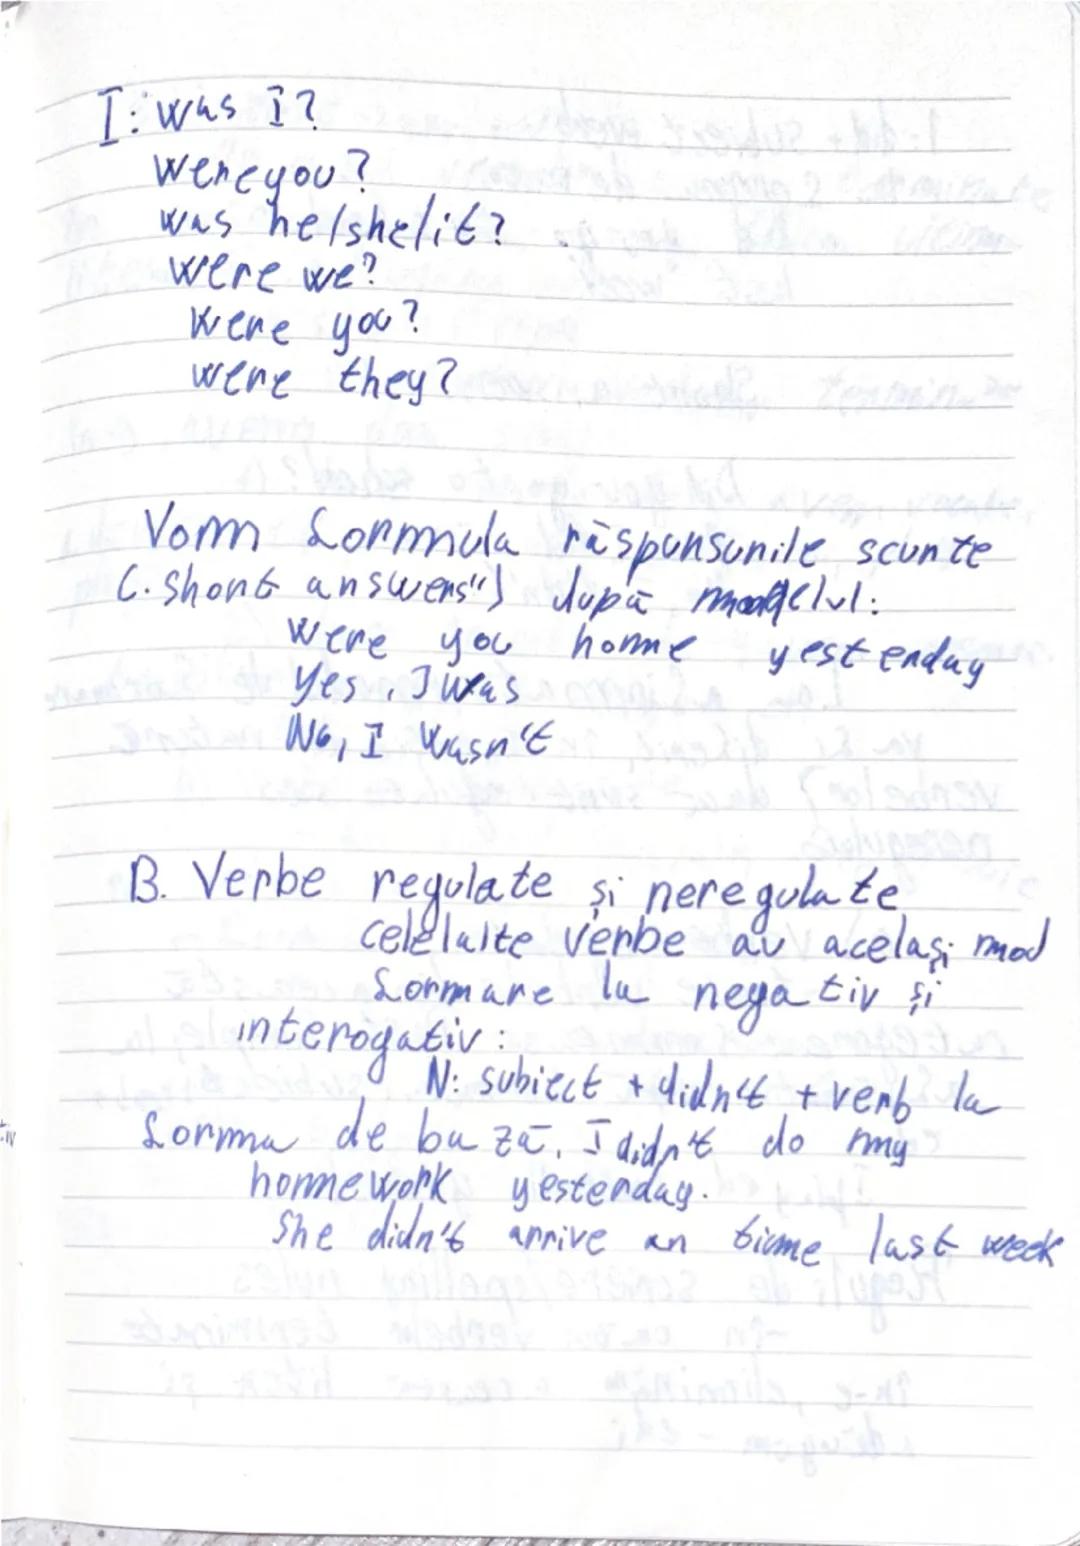 I: was I?
Were you?
was he/she/it?
were we?
Were you?
were they?
Vom formula răspunsurile scurte
(. short answers") după modelul:
Were you home yesterday
Yes, I was
No, I wasn't
B. Verbe regulate și neregulate
celelalte verbe au același mod
formare la negativ și
interogativ:
N: subiect + didn't + verb la
forma de bază. I didn't do my
homework yesterday.
She didn't arrive an time last week